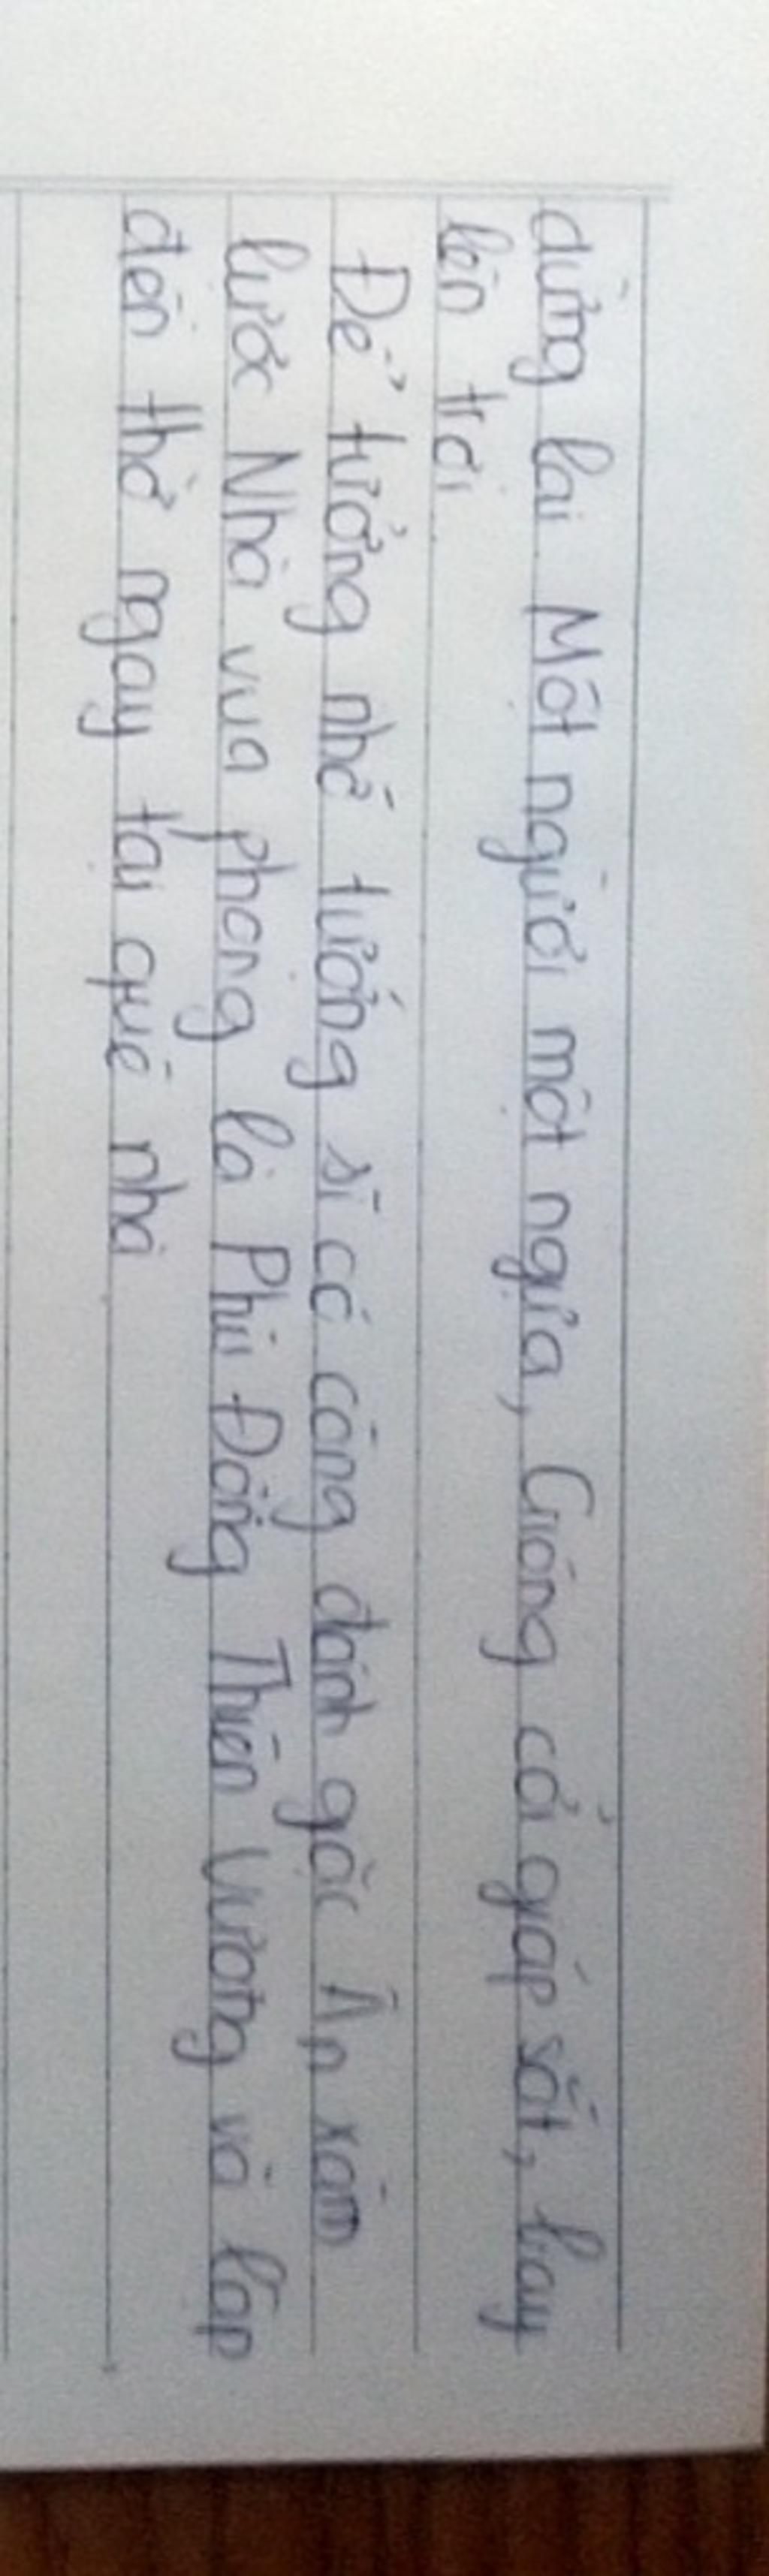 dừng lại. Một người một ngựa, Gióng cởi giáp sắt, bay
lên trời.
Để tưởng nhớ tướng sĩ có công đánh giặc Ân xâm
lược Nhà vua phong là Phù Đổng Thiên Vương và lập
đền thờ ngay tại quê nhà.